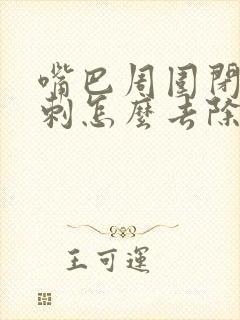 嘴巴周围閉
刺怎麼去除
王可運